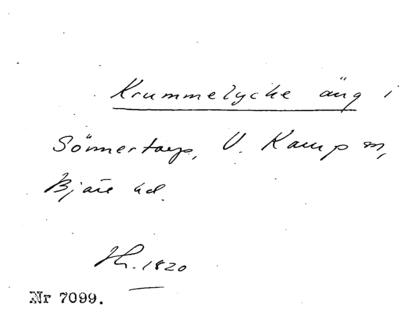 Krummelycke äng i
Sönnertorp, V. Karup sn,
Bjäre hd.
Hh. 1820
Nr 7099.